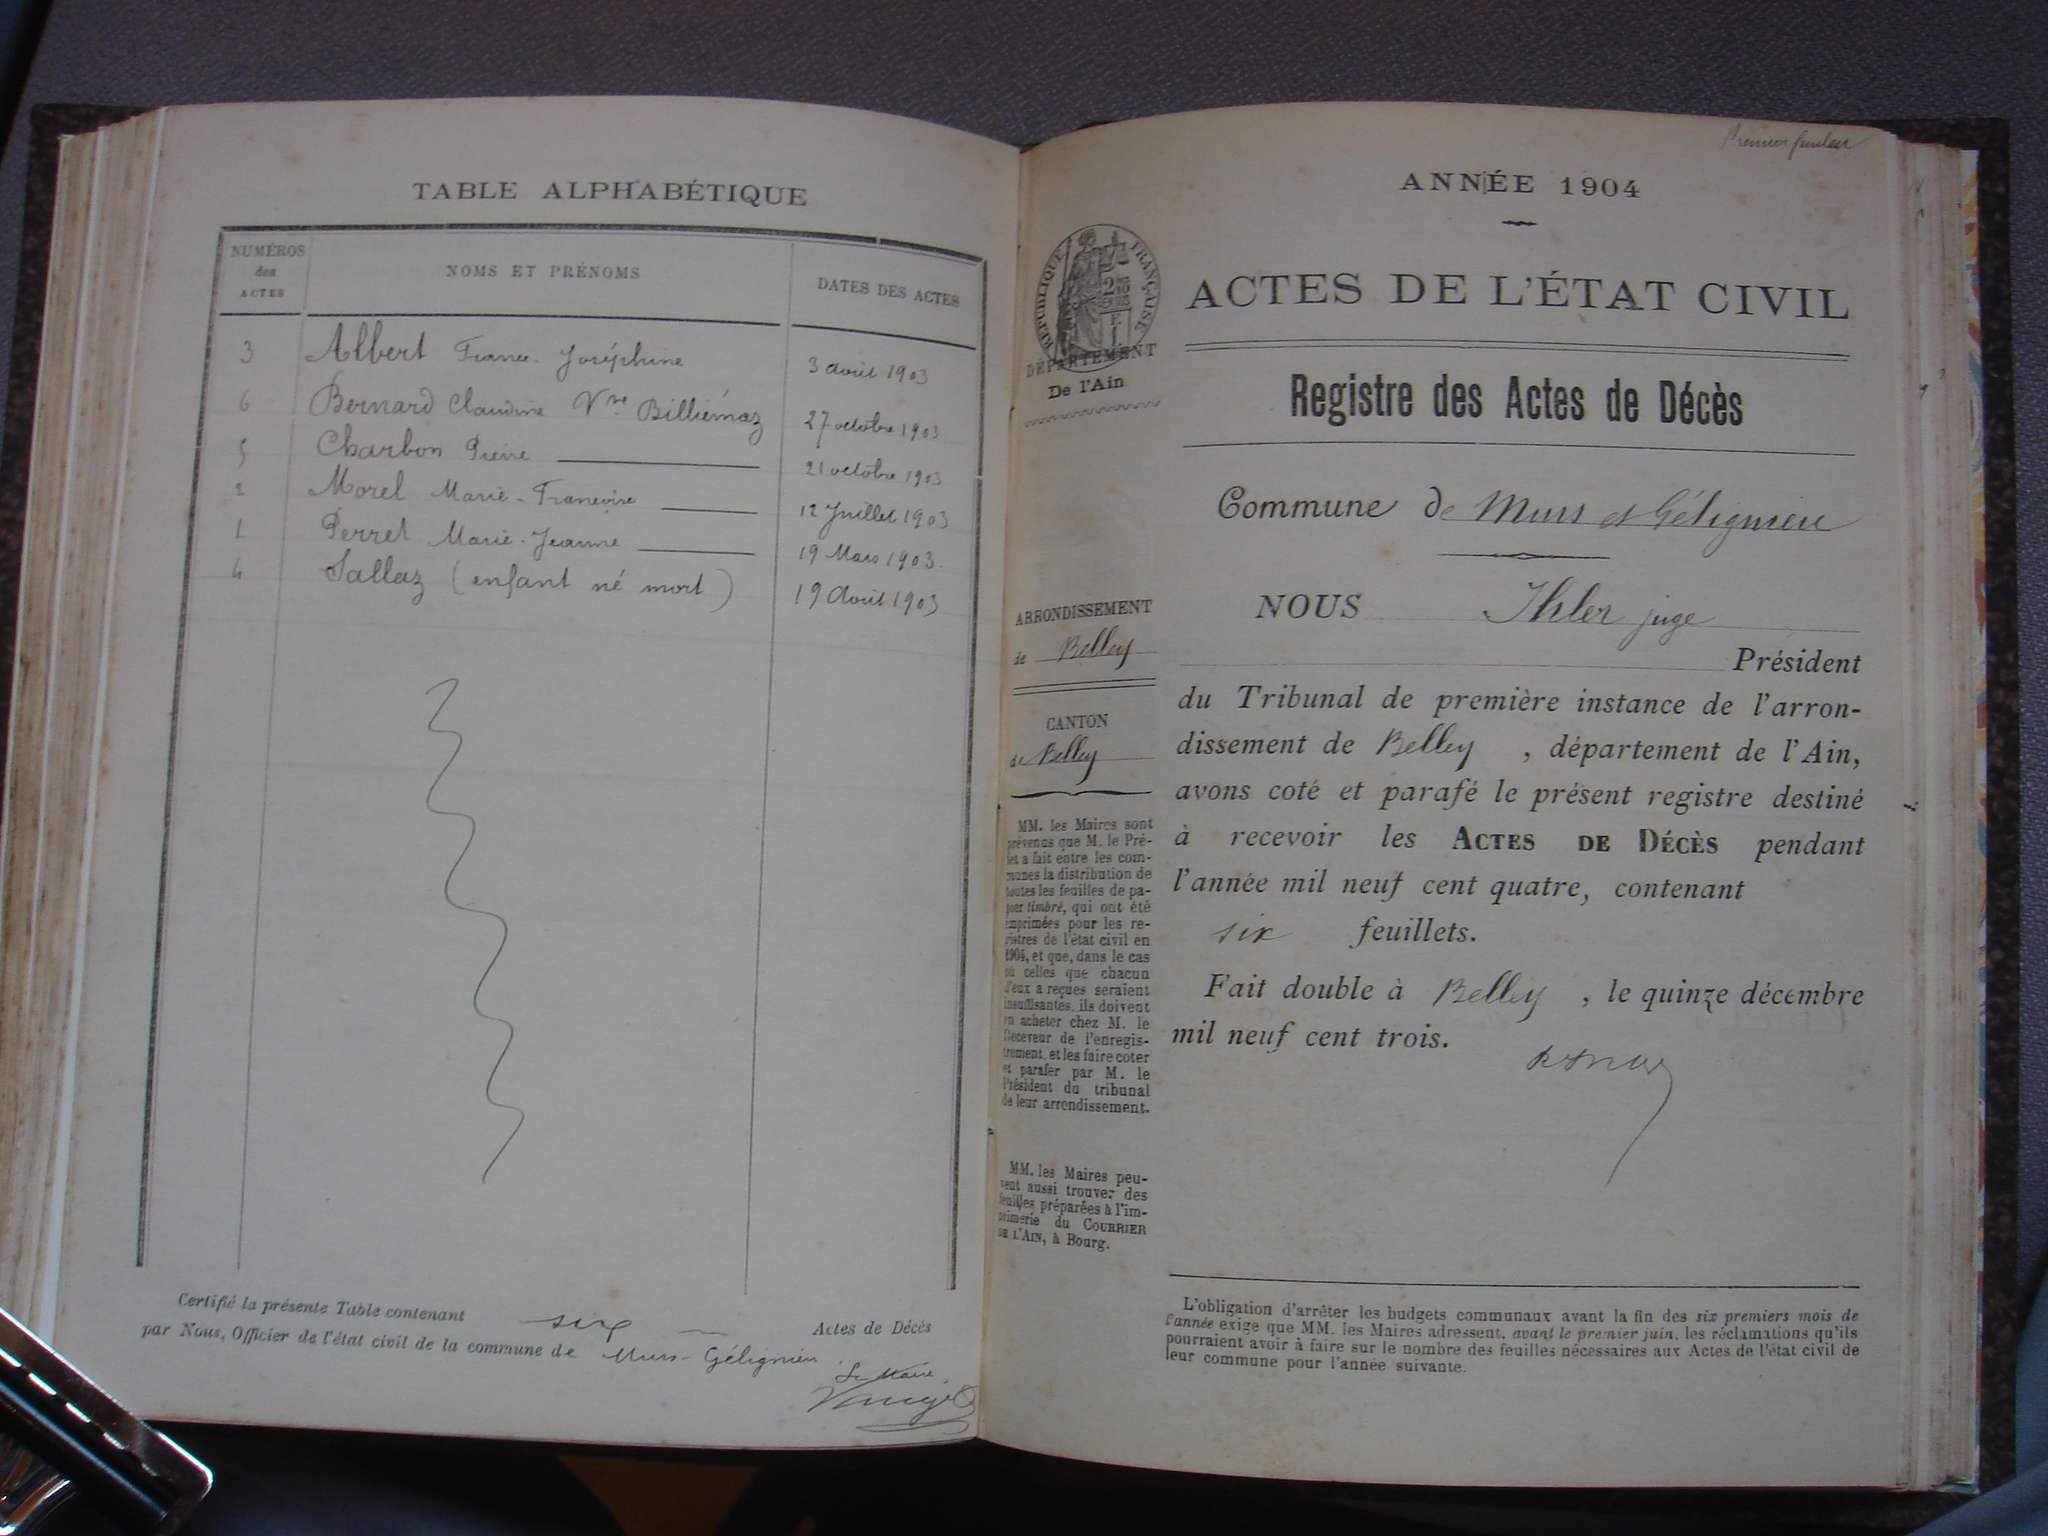 TABLE ALPHABÉTIQUE
NUMÉROS des ACTES
NOMS ET PRÉNOMS
DATES DES ACTES
3 Albert Joséphine 3 avril 1903
6 Bernard Claudine Vve Billiémaz 27 octobre 1903
5 Charbon Pierre 21 octobre 1903
2 Morel Marie-Françoise 12 Juillet 1903
1 Perret Marie-Jeanne 19 Mars 1903.
4 Sallaz (enfant né mort) 19 Août 1903
Certifié la présente Table contenant six Actes de Décès
par Nous, Officier de l'état civil de la commune de Murs-Gélignieu.
Le Maire,
Premier feuillet
ANNÉE 1904
RÉPUBLIQUE FRANÇAISE
DÉPARTEMENT
De l'Ain
ACTES DE L'ÉTAT CIVIL
Registre des Actes de Décès
Commune de Murs et Gélignieu
ARRONDISSEMENT
de Belley
CANTON
de Belley
MM. les Maires sont
prévenus que M. le Pré-
fet a fait entre les com-
munes la distribution de
toutes les feuilles de pa-
pier timbré, qui ont été
imprimées pour les re-
gistres de l'état civil en
1904, et que, dans le cas
où celles que chacun
d'eux a reçues seraient
insuffisantes, ils doivent
en acheter chez M. le
Receveur de l'enregis-
trement, et les faire coter
et parafer par M. le
Président du tribunal
de leur arrondissement.
MM. les Maires peu-
vent aussi trouver des
feuilles préparées à l'im-
primerie du COURRIER
DE L'AIN, à Bourg.
NOUS Ihler juge
Président
du Tribunal de première instance de l'arron-
dissement de Belley , département de l'Ain,
avons coté et parafé le présent registre destiné
à recevoir les ACTES DE DÉCÈS pendant
l'année mil neuf cent quatre, contenant
six feuillets.
Fait double à Belley , le quinze décembre
mil neuf cent trois.
L'obligation d'arrêter les budgets communaux avant la fin des six premiers mois de
l'année exige que MM. les Maires adressent, avant le premier juin, les réclamations qu'ils
pourraient avoir à faire sur le nombre des feuilles nécessaires aux Actes de l'état civil de
leur commune pour l'année suivante.